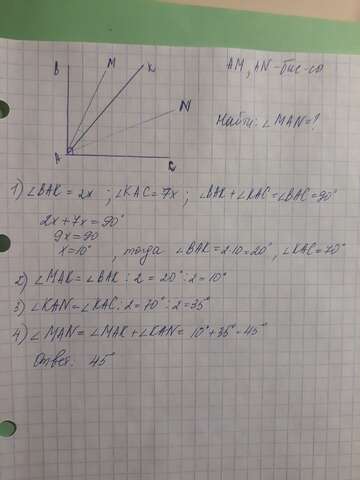 B M K AM, AN - бис-сы
N Найти: ∠MAN = ?
A C
1) ∠BAK = 2x ; ∠KAC = 7x ; ∠BAK + ∠KAC = ∠BAC = 90°
2x + 7x = 90°
9x = 90
x = 10° , тогда ∠BAK = 2·10 = 20°, ∠KAC = 70°
2) ∠MAK = ∠BAK : 2 = 20° : 2 = 10°
3) ∠KAN = ∠KAC : 2 = 70° : 2 = 35°
4) ∠MAN = ∠MAK + ∠KAN = 10° + 35° = 45°
Ответ: 45°